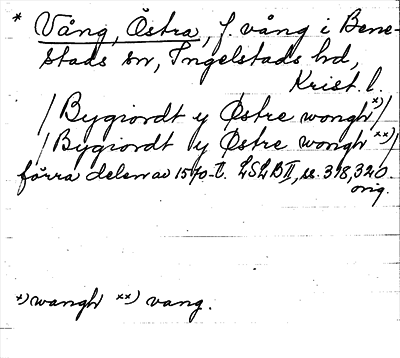 * Vång, Östra, f. vång i Bene-
stads sn, Ingelstads hd,
Krist. l.
/Bygiordt y Østre wongh x)/
/Bygiordt y Østre wongh xx)/
förra delen av 1570-t. LSLB II, s. 318, 320
orig.
x) wangh xx) vang.